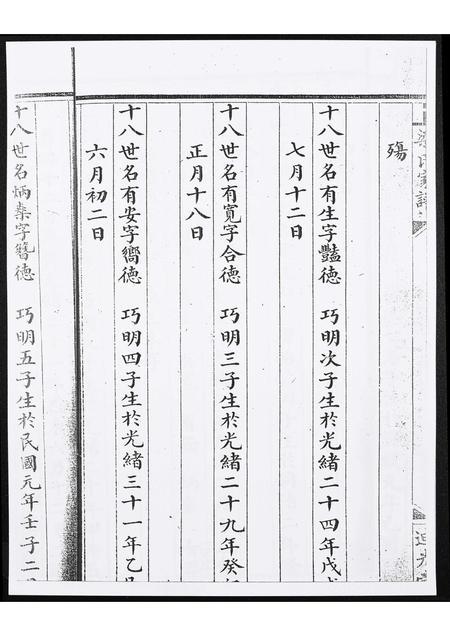 氏家譜
殤
十八世名有生字豔德 巧明次子生於光緒二十四年戊戌
七月十二日
十八世名有寬字合德 巧明三子生於光緒二十九年癸
正月十八日
十八世名有安字嚮德 巧明四子生於光緒三十一年乙
六月初二日
十八世名炳燊字簪德 巧明五子生於民國元年壬子二